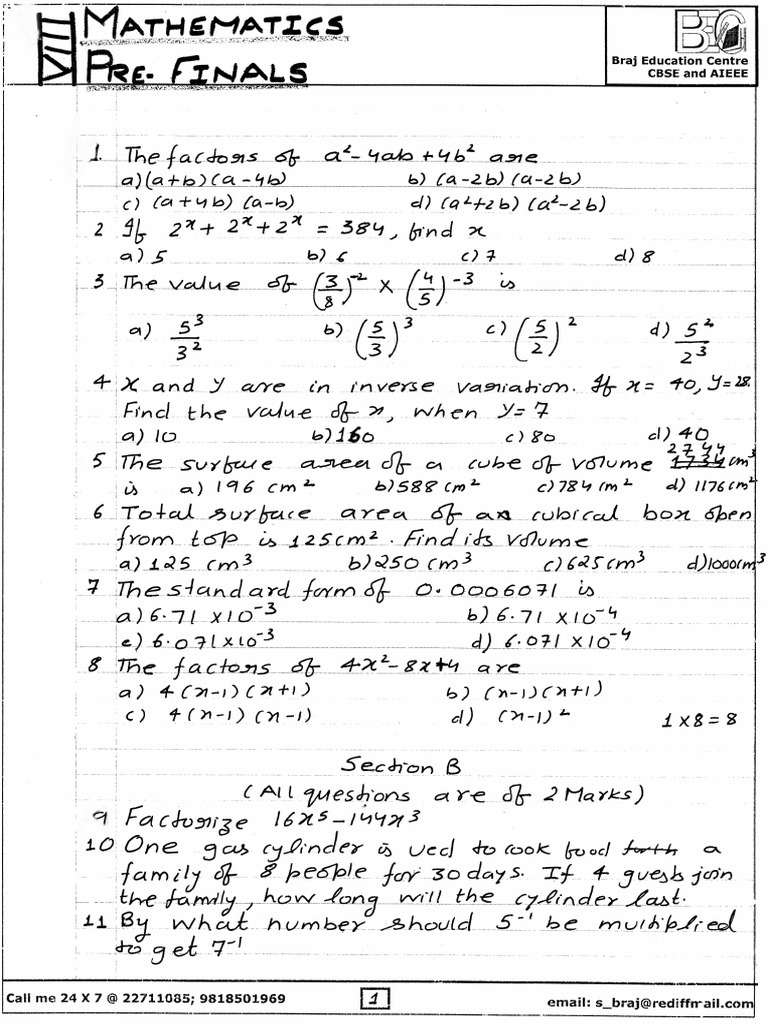 VIII MATHEMATICS
PRE-FINALS
BEC
Braj Education Centre
CBSE and AIEEE
1. The factors of a²-4ab+4b² are
a)(a+b)(a-4b) b) (a-2b)(a-2b)
c) (a+4b) (a-b) d) (a²+2b) (a²-2b)
2 If 2ˣ+ 2ˣ+2ˣ = 384, find x
a) 5 b) 6 c) 7 d) 8
3 The value of (3/8)⁻² × (4/5)⁻³ is
a) 5³/3² b) (5/3)³ c) (5/2)² d) 5²/2³
4 x and y are in inverse variation. If x= 40, y=28.
Find the value of x, when y=7
a) 10 b)160 c) 80 d) 40
5 The surface area of a cube of volume 2744 cm³
is a) 196 cm² b)588 cm² c)784 cm² d) 1176 cm²
6 Total surface area of a cubical box open
from top is 125cm². Find its volume
a) 125 cm³ b)250 cm³ c)625 cm³ d)1000cm³
7 The standard form of 0.0006071 is
a) 6.71 ×10⁻³ b) 6.71 ×10⁻⁴
c) 6.071×10⁻³ d) 6.071 ×10⁻⁴
8 The factors of 4x²-8x+4 are
a) 4(x-1)(x+1) b) (x-1)(x+1)
c) 4(x-1) (x-1) d) (x-1)² 1×8=8
Section B
(All questions are of 2 Marks)
9 Factorize 16x⁵-144x³
10 One gas cylinder is ued to cook food a
family of 8 people for 30 days. If 4 guests join
the family, how long will the cylinder last.
11 By what number should 5⁻¹ be multiplied
to get 7⁻¹
Call me 24 X 7 @ 22711085; 9818501969 1 email: s_braj@rediffmail.com